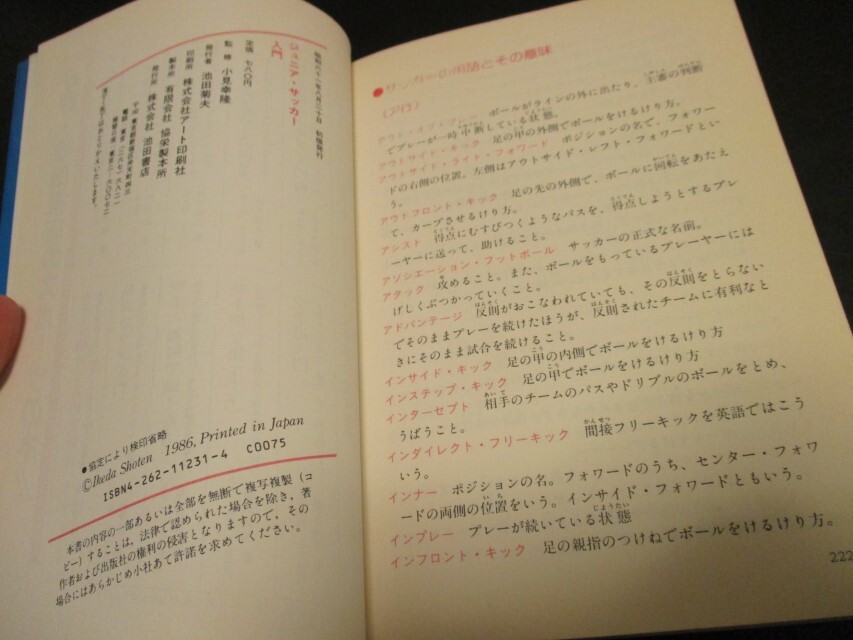 ジュニア・サッカー
入門
昭和六十一年八月三十日 初版発行
定価 七八〇円
監修 小見幸隆
発行者 池田菊夫
印刷所 株式会社アート印刷社
製本所 有限会社 協栄製本所
発行所 株式会社 池田書店
●協定により検印省略
©Ikeda Shoten 1986, Printed in Japan
ISBN4-262-11231-4 C0075
本書の内容の一部あるいは全部を無断で複写複製（コ
ピー）することは、法律で認められた場合を除き，著
作者および出版社の権利の侵害となりますので、その
場合にはあらかじめ小社あて許諾を求めてください。
●サッカーの用語とその意味
（ア行）
アウト・オブ・プレー ボールがラインの外に出たり，主審の判断
でプレーが一時中断している状態。
アウトサイド・キック 足の甲の外側でボールをけるけり方。
アウトサイド・ライト・フォワード ポジションの名で，フォワー
ドの右側の位置。左側はアウトサイド・レフト・フォワードとい
う。
アウトフロント・キック 足の先の外側で、ボールに回転をあたえ
て、カーブさせるけり方。
アシスト 得点にむすびつくようなパスを、得点しようとするプレ
ーヤーに送って、助けること。
アソシエーション・フットボール サッカーの正式な名前。
アタック 攻めること。また、ボールをもっているプレーヤーには
げしくぶつかっていくこと。
アドバンテージ 反則がおこなわれていても、その反則をとらない
でそのままプレーを続けたほうが、反則されたチームに有利なと
きにそのまま試合を続けること。
インサイド・キック 足の甲の内側でボールをけるけり方
インステップ・キック 足の甲でボールをけるけり方
インターセプト 相手のチームのパスやドリブルのボールをとめ、
うばうこと。
インダイレクト・フリーキック 間接フリーキックを英語ではこう
いう。
インナー ポジションの名。フォワードのうち、センター・フォワ
ードの両側の位置をいう。インサイド・フォワードともいう。
インプレー プレーが続いている状態
インフロント・キック 足の親指のつけねでボールをけるけり方。
222